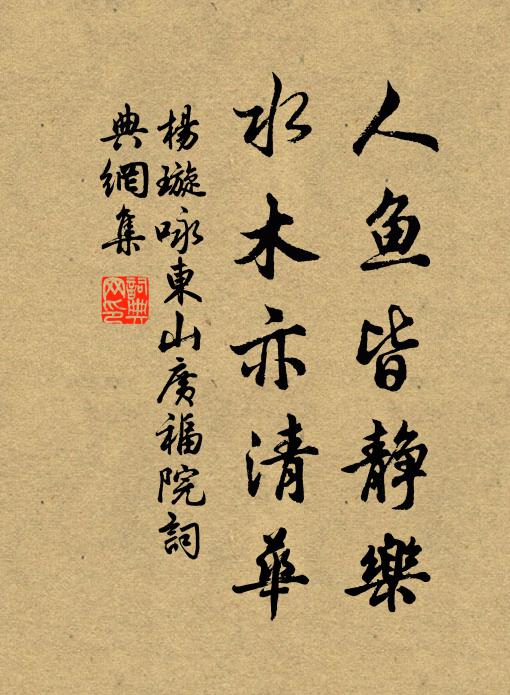 人鱼皆静樂
水木亦清華
楊璇咏東山廣福院詞
典網集
詞典
网印